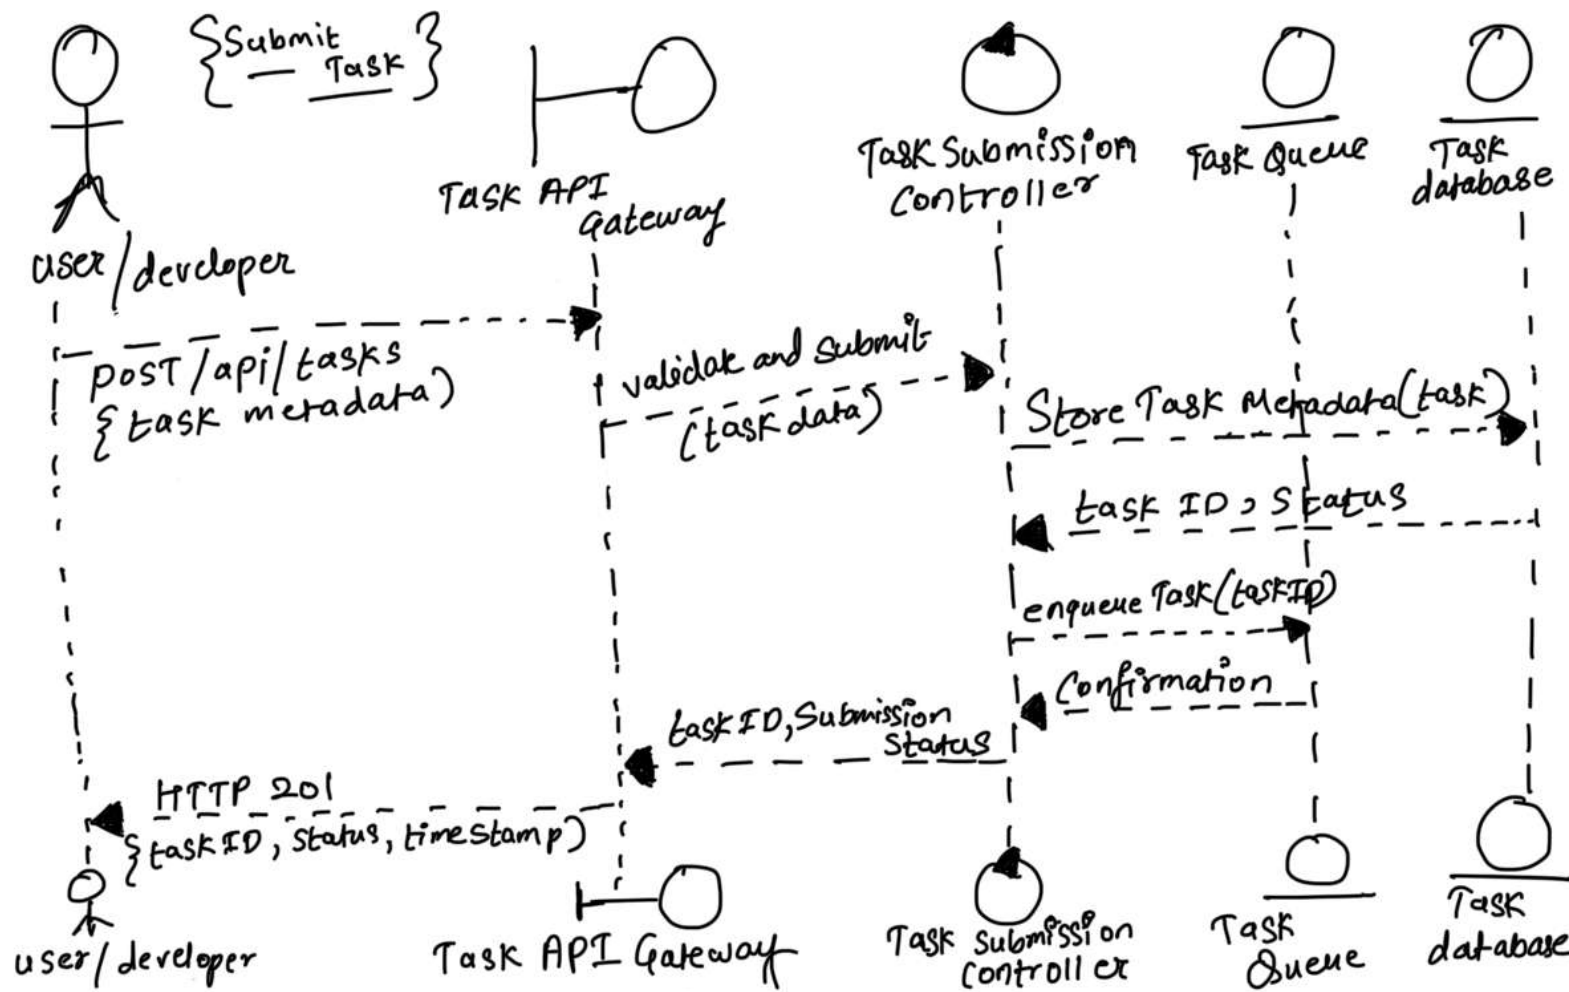 {Submit
Task}
Task API
Gateway
Task Submission
Controller
Task Queue
Task
database
user/developer
POST /api/tasks
{task metadata)
validate and submit
(task data)
Store Task Metadata(task)
task ID, Status
enqueue Task(taskID)
Confirmation
taskID, Submission
Status
HTTP 201
{taskID, status, timestamp)
user/developer
Task API Gateway
Task Submission
Controller
Task
Queue
Task
database